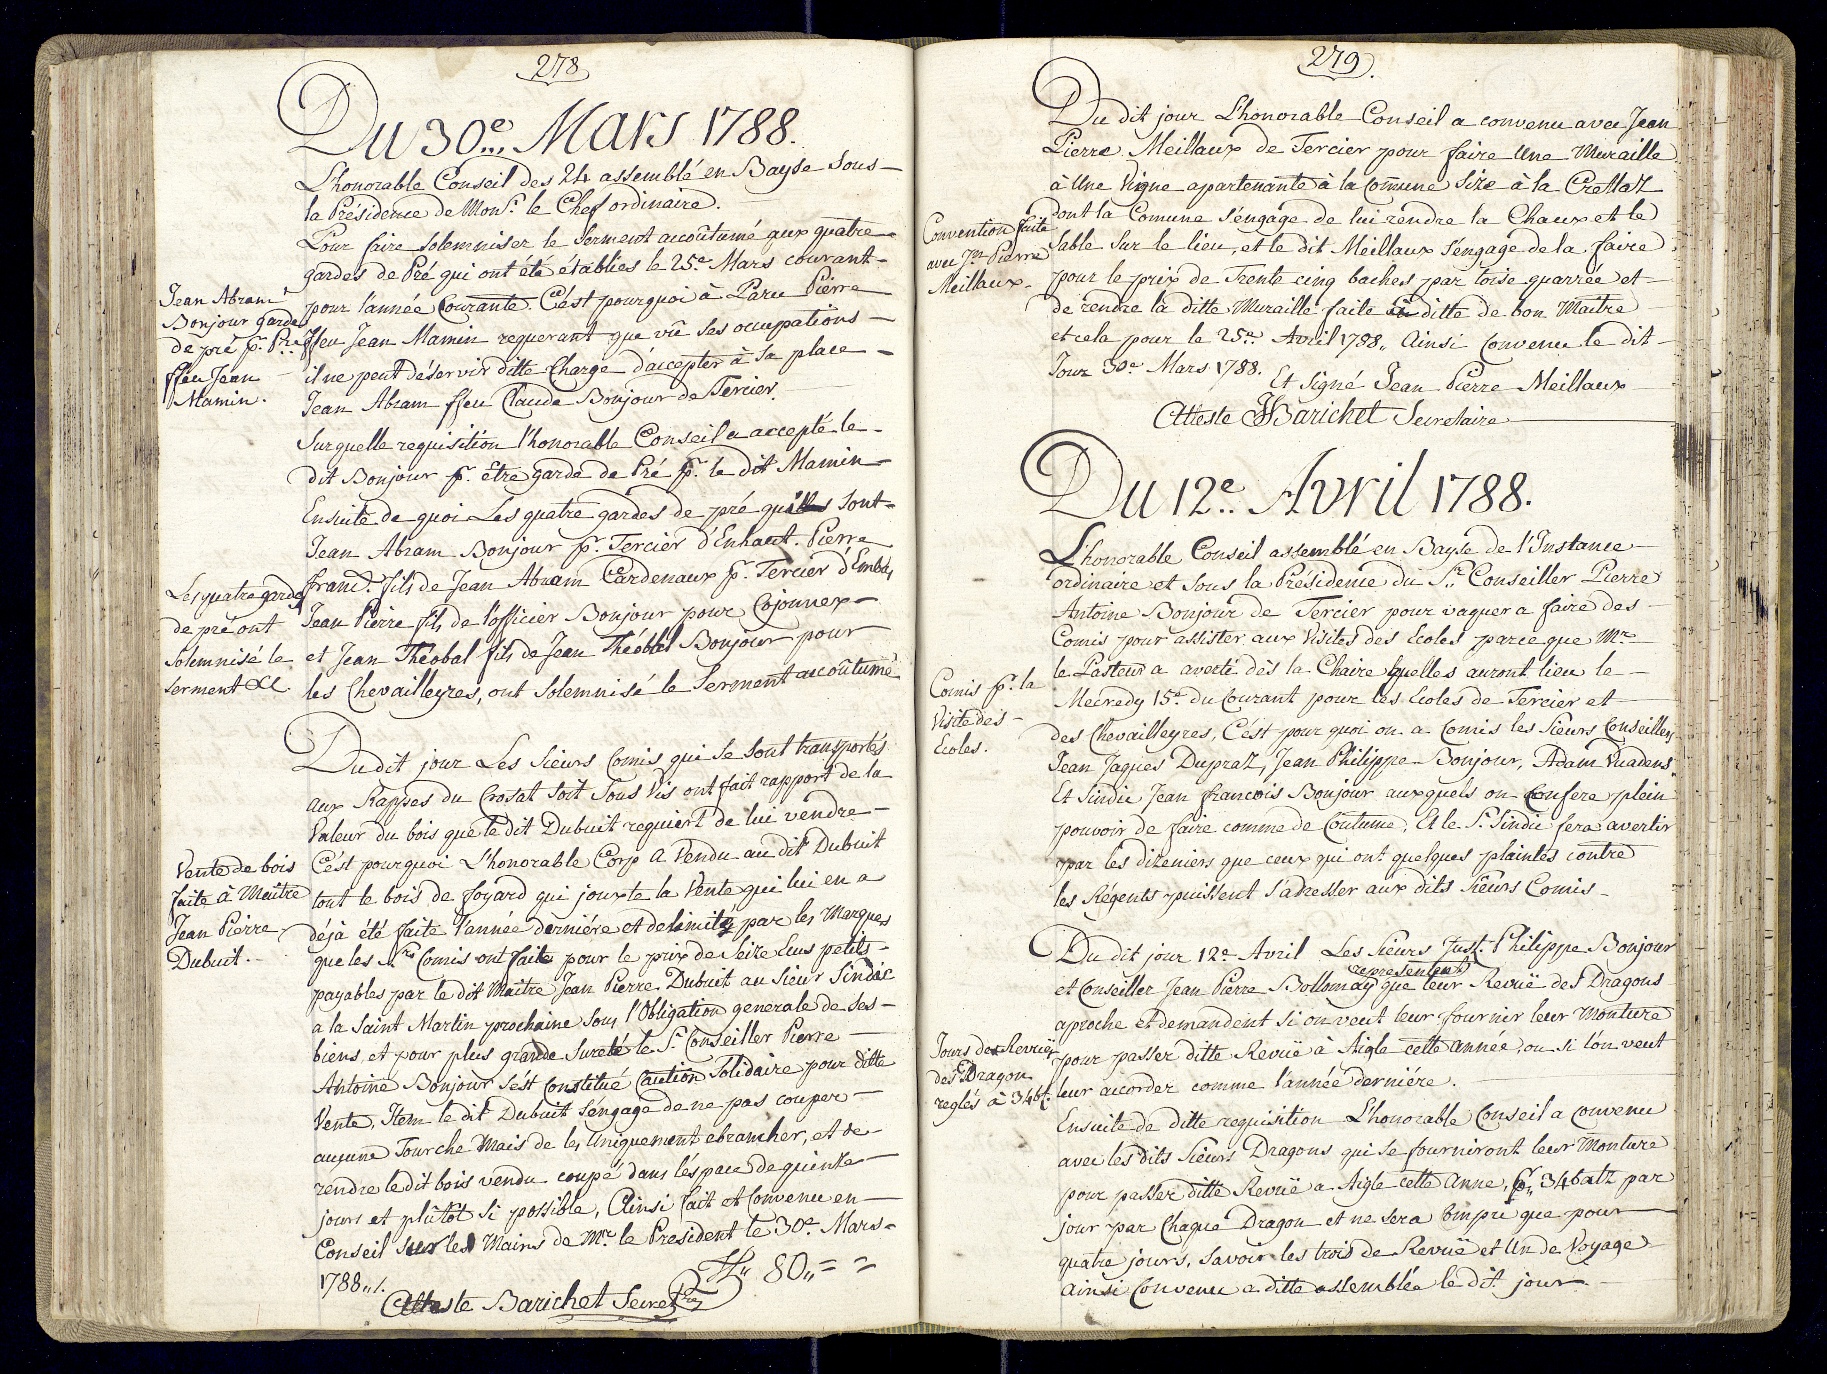 278
Du 30e Mars 1788.
L'honorable Conseil des 24 assemblé en Bayse Sous
la Présidence de Monsr. le Chef ordinaire.
Pour faire solemniser le Serment acoûtumé aux quatre
gardes de Pré qui ont été établies le 25e Mars courant
pour l'année Courante. C'est pourquoi à Paru Pierre
ffeu Jean Mamin requerant que vû ses occupations
il ne peut désservir ditte Charge d'accepter à sa place
Jean Abram ffeu Claude Bonjour de Tercier.
Jean Abram
Bonjour garde
de pré pr. Pre
ffeu Jean
Mamin.
Sur quelle requisition l'honorable Conseil a accepté le
dit Bonjour pr. etre garde de Pré pr. le dit Mamin
Ensuite de quoi Les quatre gardes de pré qui sont
Jean Abram Bonjour pr. Tercier d'Enhaut. Pierre
francs. fils de Jean Abram Cardenaux pr. Tercier d'Embas
Jean Pierre fils de l'officier Bonjour pour Cojonnex
et Jean Théobal fils de Jean Théobal Bonjour pour
les Chevailleyres, ont solemnisé le Serment acoûtumé
Les quatre gardes
de pré ont
solemnisé le
serment &c
Du dit jour Les Sieurs Comis qui se sont transportés
aux Rapses du Crosat soit Sous Vis ont fait rapport de la
Valeur du bois que le dit Dubuit requiert de lui vendre
C'est pourquoi L'honorable Corp a Vendu au dit Dubuit
tout le bois de foyard qui jouxte la Vente qui lui en a
déjà été faite l'année derniére et delimité par les Marques
que les Srs Comis ont faite pour le prix de Seize Ecus petits
payables par le dit Maitre Jean Pierre Dubuit au Sieur Sindic
a la Saint Martin prochaine sous l'Obligation generale de ses
biens, et pour plus grande Sureté le Sr. Conseiller Pierre
Antoine Bonjour s'est constitué Caution Solidaire pour ditte
Vente, Item le dit Dubuit s'engage de ne pas couper
aucune Fourche Mais de les Uniquement ebrancher, et de
rendre le dit bois vendu coupé dans l'éspace de quinze
jours et plûtôt si possible, Ainsi fait et Convenu en
Conseil sur les Mains de Mr. le President le 30e Mars
1788,,/.
80,, = =
Atteste Barichet Secret
Vente de bois
faite à Maitre
Jean Pierre
Dubuit.
279.
Du dit jour L'honorable Conseil a convenu avec Jean
Pierre Meillaux de Tercier pour faire Une Muraille
à Une Vigne apartenante à la Comune Size à la Crettaz
dont la Comune s'engage de lui rendre la Chaux et le
sable sur le lieu, et le dit Meillaux s'engage de la faire
pour le prix de Trente cinq baches par toise quarrée et
de rendre la ditte Muraille faite à ditte de bon Maitre
et cela pour le 25e Avril 1788,, Ainsi Convenu le dit
Jour 30e Mars 1788. Et Signé Jean Pierre Meillaux
Atteste Barichet Secretaire
Convention faite
avec Jn Pierre
Meillaux.
Du 12e Avril 1788.
L'honorable Conseil assemblé en Bayse de l'Instance
ordinaire et sous la Présidence du Sr. Conseiller Pierre
Antoine Bonjour de Tercier pour vaquer a faire des
Comis pour assister aux Visites des Ecoles parce que Mr
le Pasteur a averté dès la Chaire quelles auront lieu le
Mecredy 15e du Courant pour les Ecoles de Tercier et
des Chevailleyres, C'ést pourquoi on a Comis les Sieurs Conseillers
Jean Jaques Dupraz, Jean Philippe Bonjour, Adam Vuadens
Et Sindic Jean francois Bonjour auxquels on Confere plein
pouvoir de faire comme de Coutume, Et le Sr. Sindic fera avertir
par les dizeniers que ceux qui ont quelques plaintes contre
les Régents puissent s'adresser aux dits Sieurs Comis
Comis pr. la
Visite des
Ecoles.
Du dit jour 12e Avril Les Sieurs Just. Philippe Bonjour
et Conseiller Jean Pierre Bollomay representent que leur Revüe des Dragons
aproche et demandent si on veut leur fournir leur Monture
pour passer ditte Revüe à Aigle cette année, ou si l'on veut
leur acorder comme l'année derniére.
Ensuite de ditte requisition L'honorable Conseil a convenu
avec les dits Sieurs Dragons qui se fourniront leur Monture
pour passer ditte Revüe a Aigle cette Anne, pr. 34 batz par
jour par Chaque Dragon et ne sera Compri que pour
quatre jours, savoir les trois de Revüe et Un de Voyage
ainsi Convenu a ditte assemblée le dit jour.
Jours de Revüe
des Dragon
reglés à 34 bt.